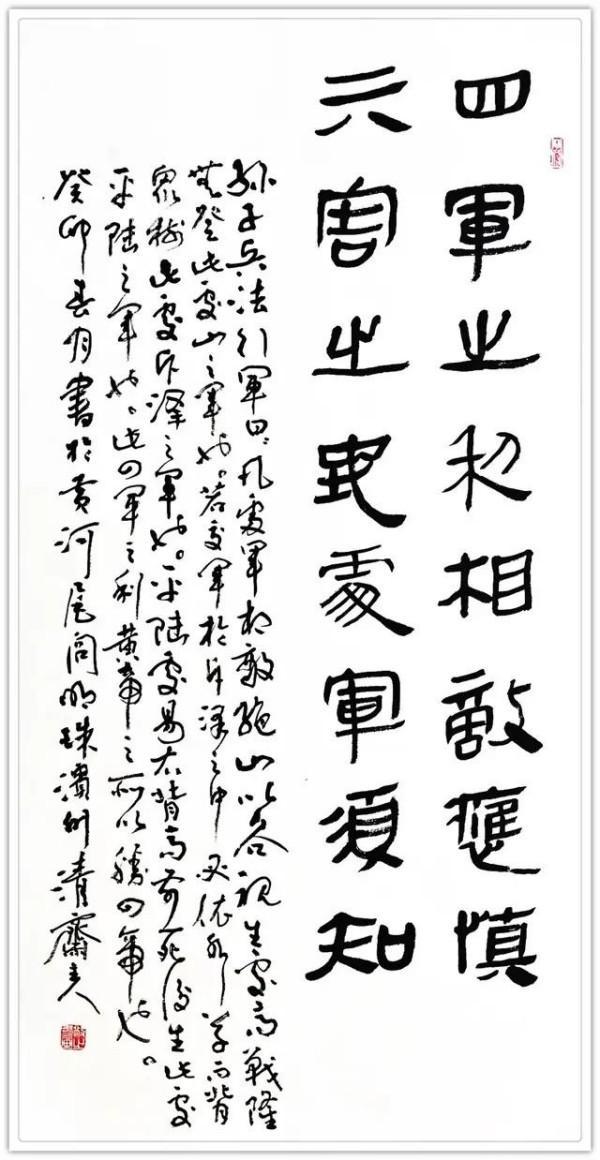 四軍之利相敵應慎
六害之處軍須知
孫子兵法行軍曰：凡處軍相敵絕山以谷視生處高戰隆
無登此處山之軍也。若交軍於斥澤之中必依水草而背
眾樹此處斥澤之軍也。平陸處易右背高前死後生此處
平陸之軍也。此四軍之利黃帝之所以勝四帝也。
癸卯春月書於黃河尾閭明珠濱州清齋主人